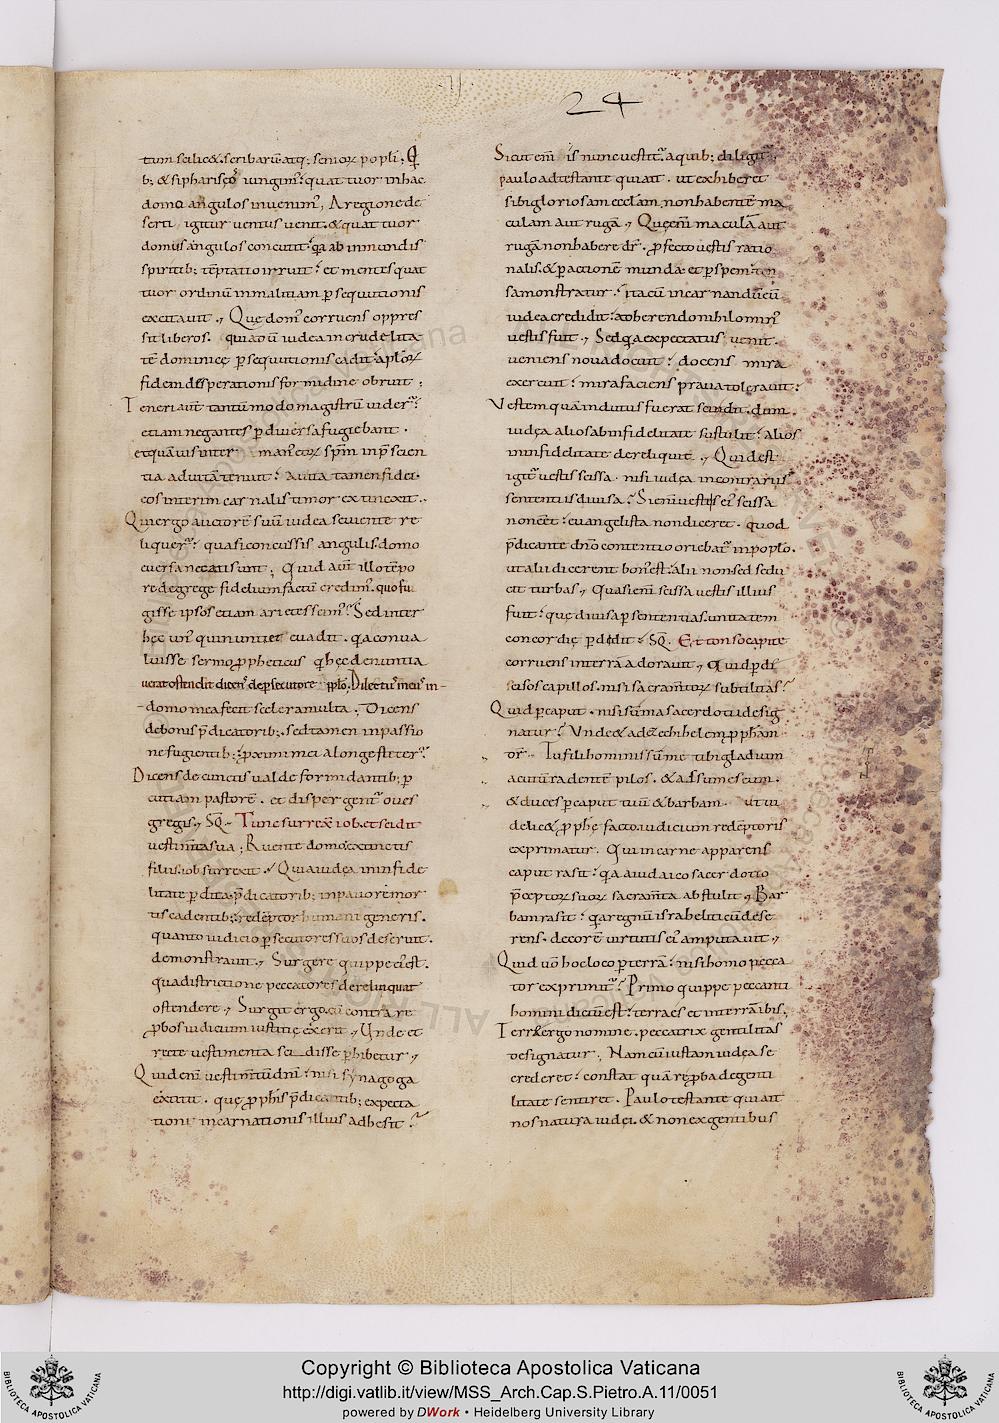 24
tum scilic&. scribarū atq; senioꝝ popli; Q̊
b; & si phariseos iungim᷒. quattuor in hac
domo angulos inuenim᷒; A regione de
serti igitur uentus uenit. & quattuor
domus angulos concutit. qa ab inmundis
spiritib; tēptatio irruit. et mentes quat
tuor ordinū in malitiam psequutionis
excitauit. Que dom᷒ corruens oppres
sit liberos. quia dū iudea in crudelita
tē dominicę psequutionis cadit. aplōꝝ
fidem desperationis formidine obruit;
Teneri autē tantūmodo magistrū uider᷒.
etiam negantes p diuersa fugiebant.
et quāuis inter manꝰ eoꝝ spm̄ in pscien
tia ad uitā tenuit. a uita tamen fidei
eos interim carnalis timor extinxit.
Qui ergo auctorē suū iudea seuiente re
liquer᷒. quasi concussis angulis. domo
euersa necati sunt; Quid aūt illo tēpo
re de grege fidelium factū credim᷒. quo fu
gisse ipsos etiam arietes scim᷒. Sed inter
hęc un᷒ qui nuntiet euadit. qa conua
luisse sermo ppheticus q̊ hęc denuntia
uerat ostendit dicens de psecutore pplo. Dilectus meus in
domo mea fecit scelera multa. Dicens
de bonis pdicatorib;. sed tamen in passio
ne fugientib;. Proximi mei a longe steter᷒.
Dicens de cunctis ualde formidantib; p
cutiam pastorē. et dispergent᷒ oues
gregis. SQ. Tunc surrex̄ iob. et scidit
uestimta sua; Ruente domo. extinctis
filiis. iob surrexit. Quia iudęa in infide
litate pdita. pdicatorib; in pauore mor
tis cadentib;. redēptor humani generis.
quanto iudicio psecutores suos deseruit.
demonstrauit. Surgere quippe ei᷒ est.
qua districtione peccatores derelinquat
ostendere. Surgit ergo. cū contra re
pbos iudicium iustitię exerit. Unde et
recte uestimenta scidisse phibetur.
Quid enī uestimtū dnī. nisi synagoga
extitit. que pphis pdicantib; expecta
tioni incarnationis illius adhesit.
Sicut enī is nunc uestit᷒. a quib; diligit᷒.
paulo adtestante qui ait. ut exhiberet
sibi gloriosam ecclam, non habentē ma
culam aut rugā. Quę enī maculā aut
rugā non habere dr̄. pfecto uestis ratio
nalis. & p actionē munda. et p spem ten
sa monstratur. ita cū incarnandū eū
iudea credidit. adherendo nihilomin᷒
uestis fuit. Sed qa expectatus uenit.
ueniens noua docuit. docens mira
exercuit. mira faciens praua tolerauit.
Vestem qua indutus fuerat scindit. dum
iudęa alios ab infidelitate sustulit. alios
in infidelitate dereliquit. Quid est
igit᷒ uestis scissa nisi iudęa in contrariis
sententiis diuisa. Si enī uestis ei᷒ scissa
non eēt. euangelista non diceret. quod
pdicante dno contentio oriebat᷒ in poplo.
ut alii dicerent bon᷒ est. alii non. sed sedu
cit turbas. Quasi enī scissa uestis illius
fuit. que diuisa p sententias. unitatem
concordię pdidit. SQ. Et tonso capite
corruens in terrā adorauit. Quid p di
scisos capillos. nisi sacramtoꝝ subtilitas.
Quid p caput. nisi summa sacerdotii desig
natur. Unde & ad ezechihelem ppham
dr̄. Tu fili hominis sume tibi gladium
acutū radentē pilos. & adsumes eum.
& duces p caput tuū & barbam. ut ui
delic& pphę facto. iudicium redēptoris
exprimatur. Qui in carne apparens
caput rasit. qa a iudaico sacerdotio
pceptoꝝ suoꝝ sacramta abstulit. Bar
bam rasit. qa regnū israheliticū dese
rens. decorē uirtutis ei᷒ amputauit.
Quid uō hoc loco p terrā. nisi homo pecca
tor exprimit᷒. Primo quippe peccanti
homini dictū est. terra es et in terrā ibis;
Terrę ergo nomine. peccatrix gentilitas
designatur. Nam cū iustam iudęa se
crederet. constat quā repba de genti
litate sentiret. Paulo testante qui ait
nos natura iudęi. & non ex gentibus
Copyright © Biblioteca Apostolica Vaticana
http://digi.vatlib.it/view/MSS_Arch.Cap.S.Pietro.A.11/0051
powered by DWork • Heidelberg University Library
BIBLIOTECA APOSTOLICA VATICANA
BIBLIOTECA APOSTOLICA VATICANA